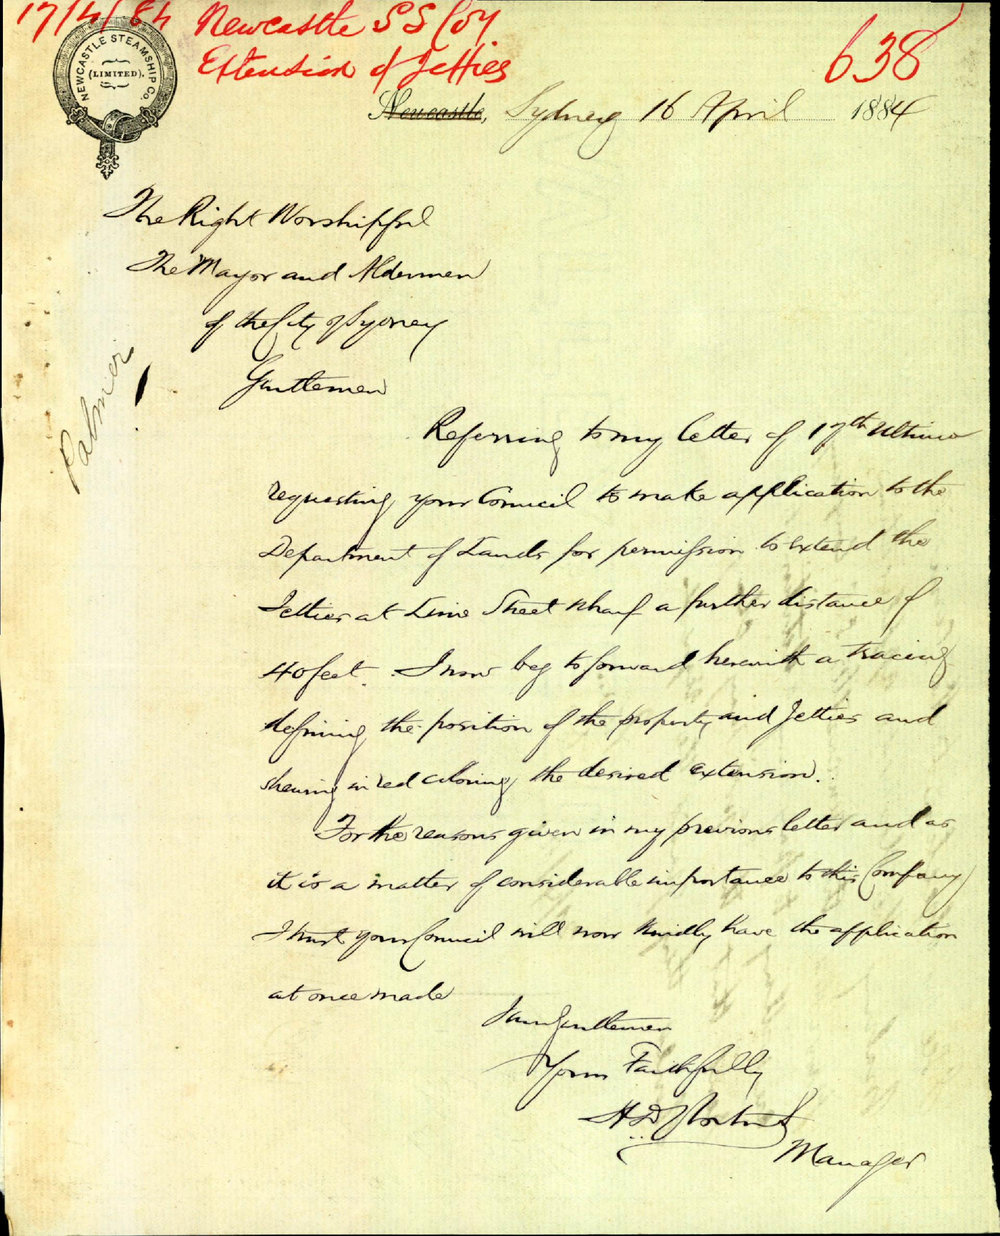 17/4/84 Newcastle SS Coy
Extension of Jetties
638
NEWCASTLE STEAMSHIP Co.
(LIMITED).
Newcastle, Sydney 16 April 1884
The Right Worshipful
The Mayor and Aldermen
of the City of Sydney
Gentlemen
Palmer
Referring to my letter of 17th Ultimo
requesting your Council to make application to the
Department of Lands for permission to extend the
Jetties at Lime Street Wharf a further distance of
40 feet. I now beg to forward herewith a tracing
defining the position of the property and Jetties and
shewing in red coloring the desired extension.
For the reasons given in my previous letter and as
it is a matter of considerable importance to this Company
I trust your Council will now kindly have the application
at once made
I am Gentlemen
Yours Faithfully
H D
Manager